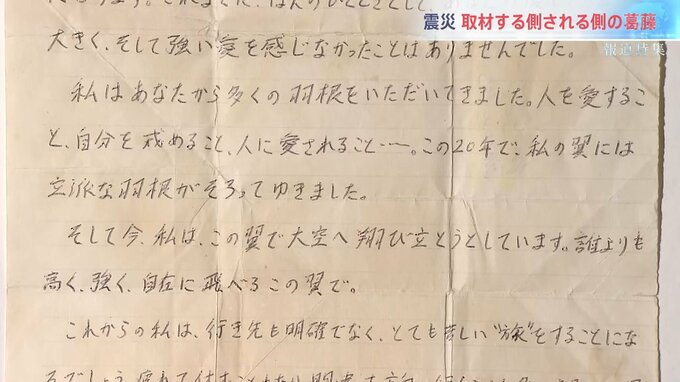 震災 取材する側される側の葛藤
報道特集
大きく、そして強い愛を感じなかったことはありませんでした。
私はあなたから多くの羽根をいただいてきました。人を愛するこ
と、自分を戒めること、人に愛されること……。この20年で、私の翼には
立派な羽根がそろってゆきました。
そして今、私は、この翼で大空へ翔び立とうとしています。誰よりも
高く、強く、自在に飛べるこの翼で。
これからの私は、行き先も明確でなく、とても苦しい“旅”をすることにな
るでしょう。